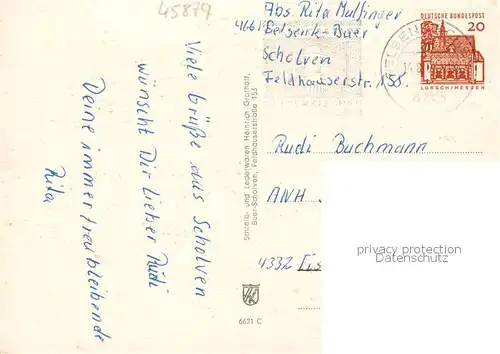 45879
Viele Grüße aus Scholven
wünscht Dir Lieber Rudi
Deine immertreubleibende
Rita
Schreib- und Lederwaren Heinrich Grothoff,
Buer-Scholven, Feldhauserstraße 155
6621 C
Abs Rita Mulfinger
466 Gelsenk-Buer
Scholven
Feldhauserstr. 155.
DEUTSCHE BUNDESPOST
20
LORSCH/HESSEN
Rudi Buchmann
ANH.
4332
privacy protection
Datenschutz